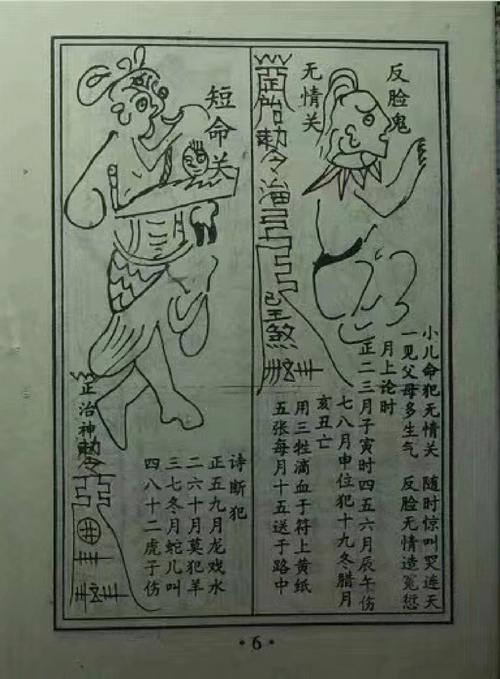 反脸鬼
无情关
小儿命犯无情关 随时惊叫哭连天
一见父母多生气 反脸无情造冤愆
月上论时
正二三月子寅时四五六月辰午伤
七八月申位犯十九冬腊月
亥丑亡
用三牲滴血于符上黄纸
五张每月十五送于路中
勅令
煞
短命关
诗断犯
正五九月龙戏水
二六十月莫犯羊
三七冬月蛇儿叫
四八十二虎子伤
治神勅令
·6·